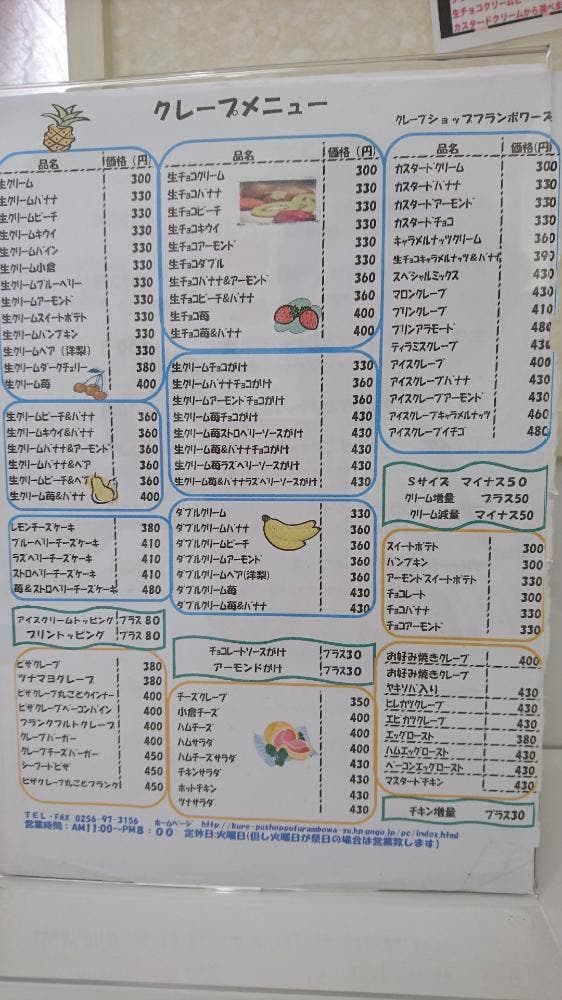 生チョコクリームと
カスタードクリームから選べま
クレープメニュー
クレープショップフランボワーズ
品名 価格(円)
生クリーム 300
生クリームバナナ 330
生クリームピーチ 330
生クリームキウイ 330
生クリームパイン 330
生クリーム小倉 330
生クリームブルーベリー 330
生クリームアーモンド 330
生クリームスイートポテト 330
生クリームパンプキン 330
生クリームペア (洋梨) 330
生クリームダークチェリー 380
生クリーム苺 400
生クリームピーチ&バナナ 360
生クリームキウイ&バナナ 360
生クリームバナナ&アーモンド 360
生クリームバナナ&ペア 360
生クリームピーチ&ペア 360
生クリーム苺&バナナ 400
レモンチーズケーキ 380
ブルーベリーチーズケーキ 410
ラズベリーチーズケーキ 410
ストロベリーチーズケーキ 410
苺&ストロベリーチーズケーキ 480
アイスクリームトッピング プラス80
プリントッピング プラス80
ピザクレープ 380
ツナマヨクレープ 380
ピザクレープ丸ごとウインナー 400
ピザクレープベーコンパイン 400
フランクフルトクレープ 400
クレープバーガー 400
クレープチーズバーガー 450
シーフードピザ 450
ピザクレープ丸ごとフランク 450
品名 価格(円)
生チョコクリーム 300
生チョコバナナ 330
生チョコピーチ 330
生チョコキウイ 330
生チョコアーモンド 330
生チョコダブル 330
生チョコバナナ&アーモンド 360
生チョコピーチ&バナナ 360
生チョコ苺 400
生チョコ苺&バナナ 400
生クリームチョコがけ 330
生クリームバナナチョコがけ 360
生クリームアーモンドチョコがけ 360
生クリーム苺チョコがけ 430
生クリーム苺ストロベリーソースがけ 430
生クリーム苺&バナナチョコがけ 430
生クリーム苺ラズベリーソースがけ 430
生クリーム苺&バナナラズベリーソースがけ 430
ダブルクリーム 330
ダブルクリームバナナ 360
ダブルクリームピーチ 360
ダブルクリームアーモンド 360
ダブルクリームペア(洋梨) 360
ダブルクリーム苺 430
ダブルクリーム苺&バナナ 430
チョコレートソースがけ プラス30
アーモンドがけ プラス30
チーズクレープ 350
小倉チーズ 400
ハムチーズ 400
ハムサラダ 400
ハムチーズサラダ 430
チキンサラダ 430
ホットチキン 430
ツナサラダ 430
品名 価格(円)
カスタードクリーム 300
カスタードバナナ 330
カスタードアーモンド 330
カスタードチョコ 330
キャラメルナッツクリーム 360
生チョコキャラメルナッツ&バナナ 390
スペシャルミックス 430
マロンクレープ 430
プリンクレープ 410
プリンアラモード 480
ティラミスクレープ 430
アイスクレープ 400
アイスクレープバナナ 430
アイスクレープアーモンド 430
アイスクレープキャラメルナッツ 460
アイスクレープイチゴ 480
Sサイズ マイナス50
クリーム増量 プラス50
クリーム減量 マイナス50
スイートポテト 300
パンプキン 300
アーモンドスイートポテト 330
チョコレート 300
チョコバナナ 330
チョコアーモンド 330
お好み焼きクレープ 400
お好み焼きクレープ
ヤキソバ入り 430
ヒレカツクレープ 430
エビカツクレープ 430
エッグロースト 380
ハムエッグロースト 430
ベーコンエッグロースト 430
マスタードチキン 430
チキン増量 プラス30
TEL・FAX 0256-97-3156 ホームページ http://kure-pushoppufurambowa-zu.hp.gogo.jp/pc/index.html
営業時間:AM11:00~PM8:00 定休日:火曜日(但し火曜日が祭日の場合は営業致します)